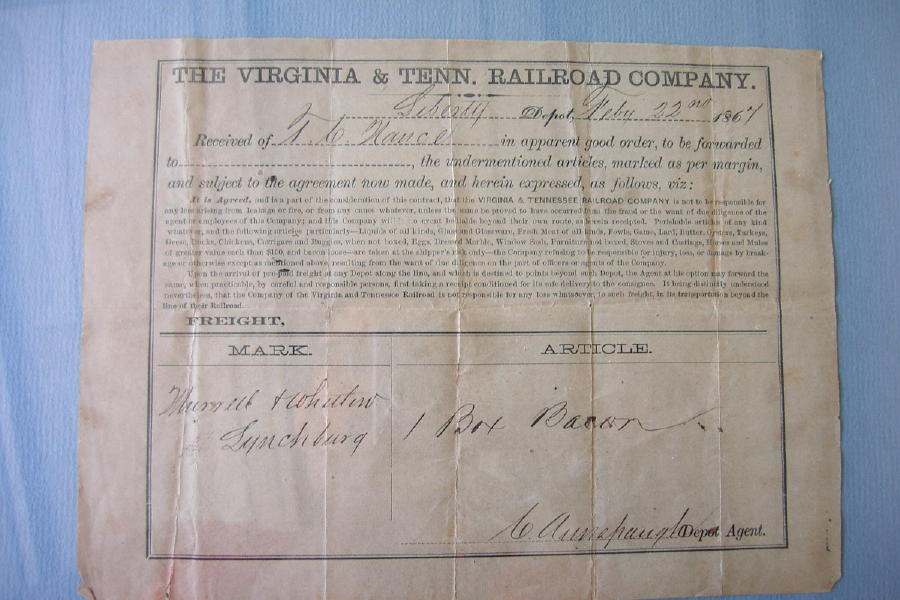 THE VIRGINIA & TENN. RAILROAD COMPANY.
Liberty Depot, Feby 22nd 1867
Received of T. C. Nance in apparent good order, to be forwarded
to , the undermentioned articles, marked as per margin,
and subject to the agreement now made, and herein expressed, as follows, viz:
It is Agreed, and is a part of the consideration of this contract, that the VIRGINIA & TENNESSEE RAILROAD COMPANY is not to be responsible for
any loss arising from leakage or fire, or from any cause whatever, unless the same be proved to have occurred from the fraud or the want of due diligence of the
agent or employees of this Company; and this Company will in no event be liable beyond their own route, as severals receipted. Perishable articles of any kind
whatever, and the following articles particularly—Liquids of all kinds, Glass and Glassware, Fresh Meat of all kinds, Fowls, Game, Lard, Butter, Oysters, Turkeys,
Geese, Ducks, Chickens, Carriages and Buggies, when not boxed, Eggs, Dressed Marble, Window Sash, Furniture not boxed, Stoves and Castings, Horses and Mules
of greater value each than $100, and bacon loose—are taken at the shipper's risk only—the Company refusing to be responsible for injury, loss, or damage by break-
age or otherwise except as mentioned above, resulting from the want of due diligence on the part of officers or agents of the Company.
Upon the arrival of pre-paid freight at any Depot along the line, and which is destined to points beyond such Depot, the Agent at his option may forward the
same, when practicable, by careful and responsible persons, first taking a receipt conditioned for its safe delivery to the consignee. It being distinctly understood
nevertheless, that the Company of the Virginia and Tennessee Railroad is not responsible for any loss whatsoever, to such freight, in its transportation beyond the
line of their Railroad.
FREIGHT,
MARK. ARTICLE.
Lynchburg 1 Box Bacon
C. Aunspaugh Depot Agent.